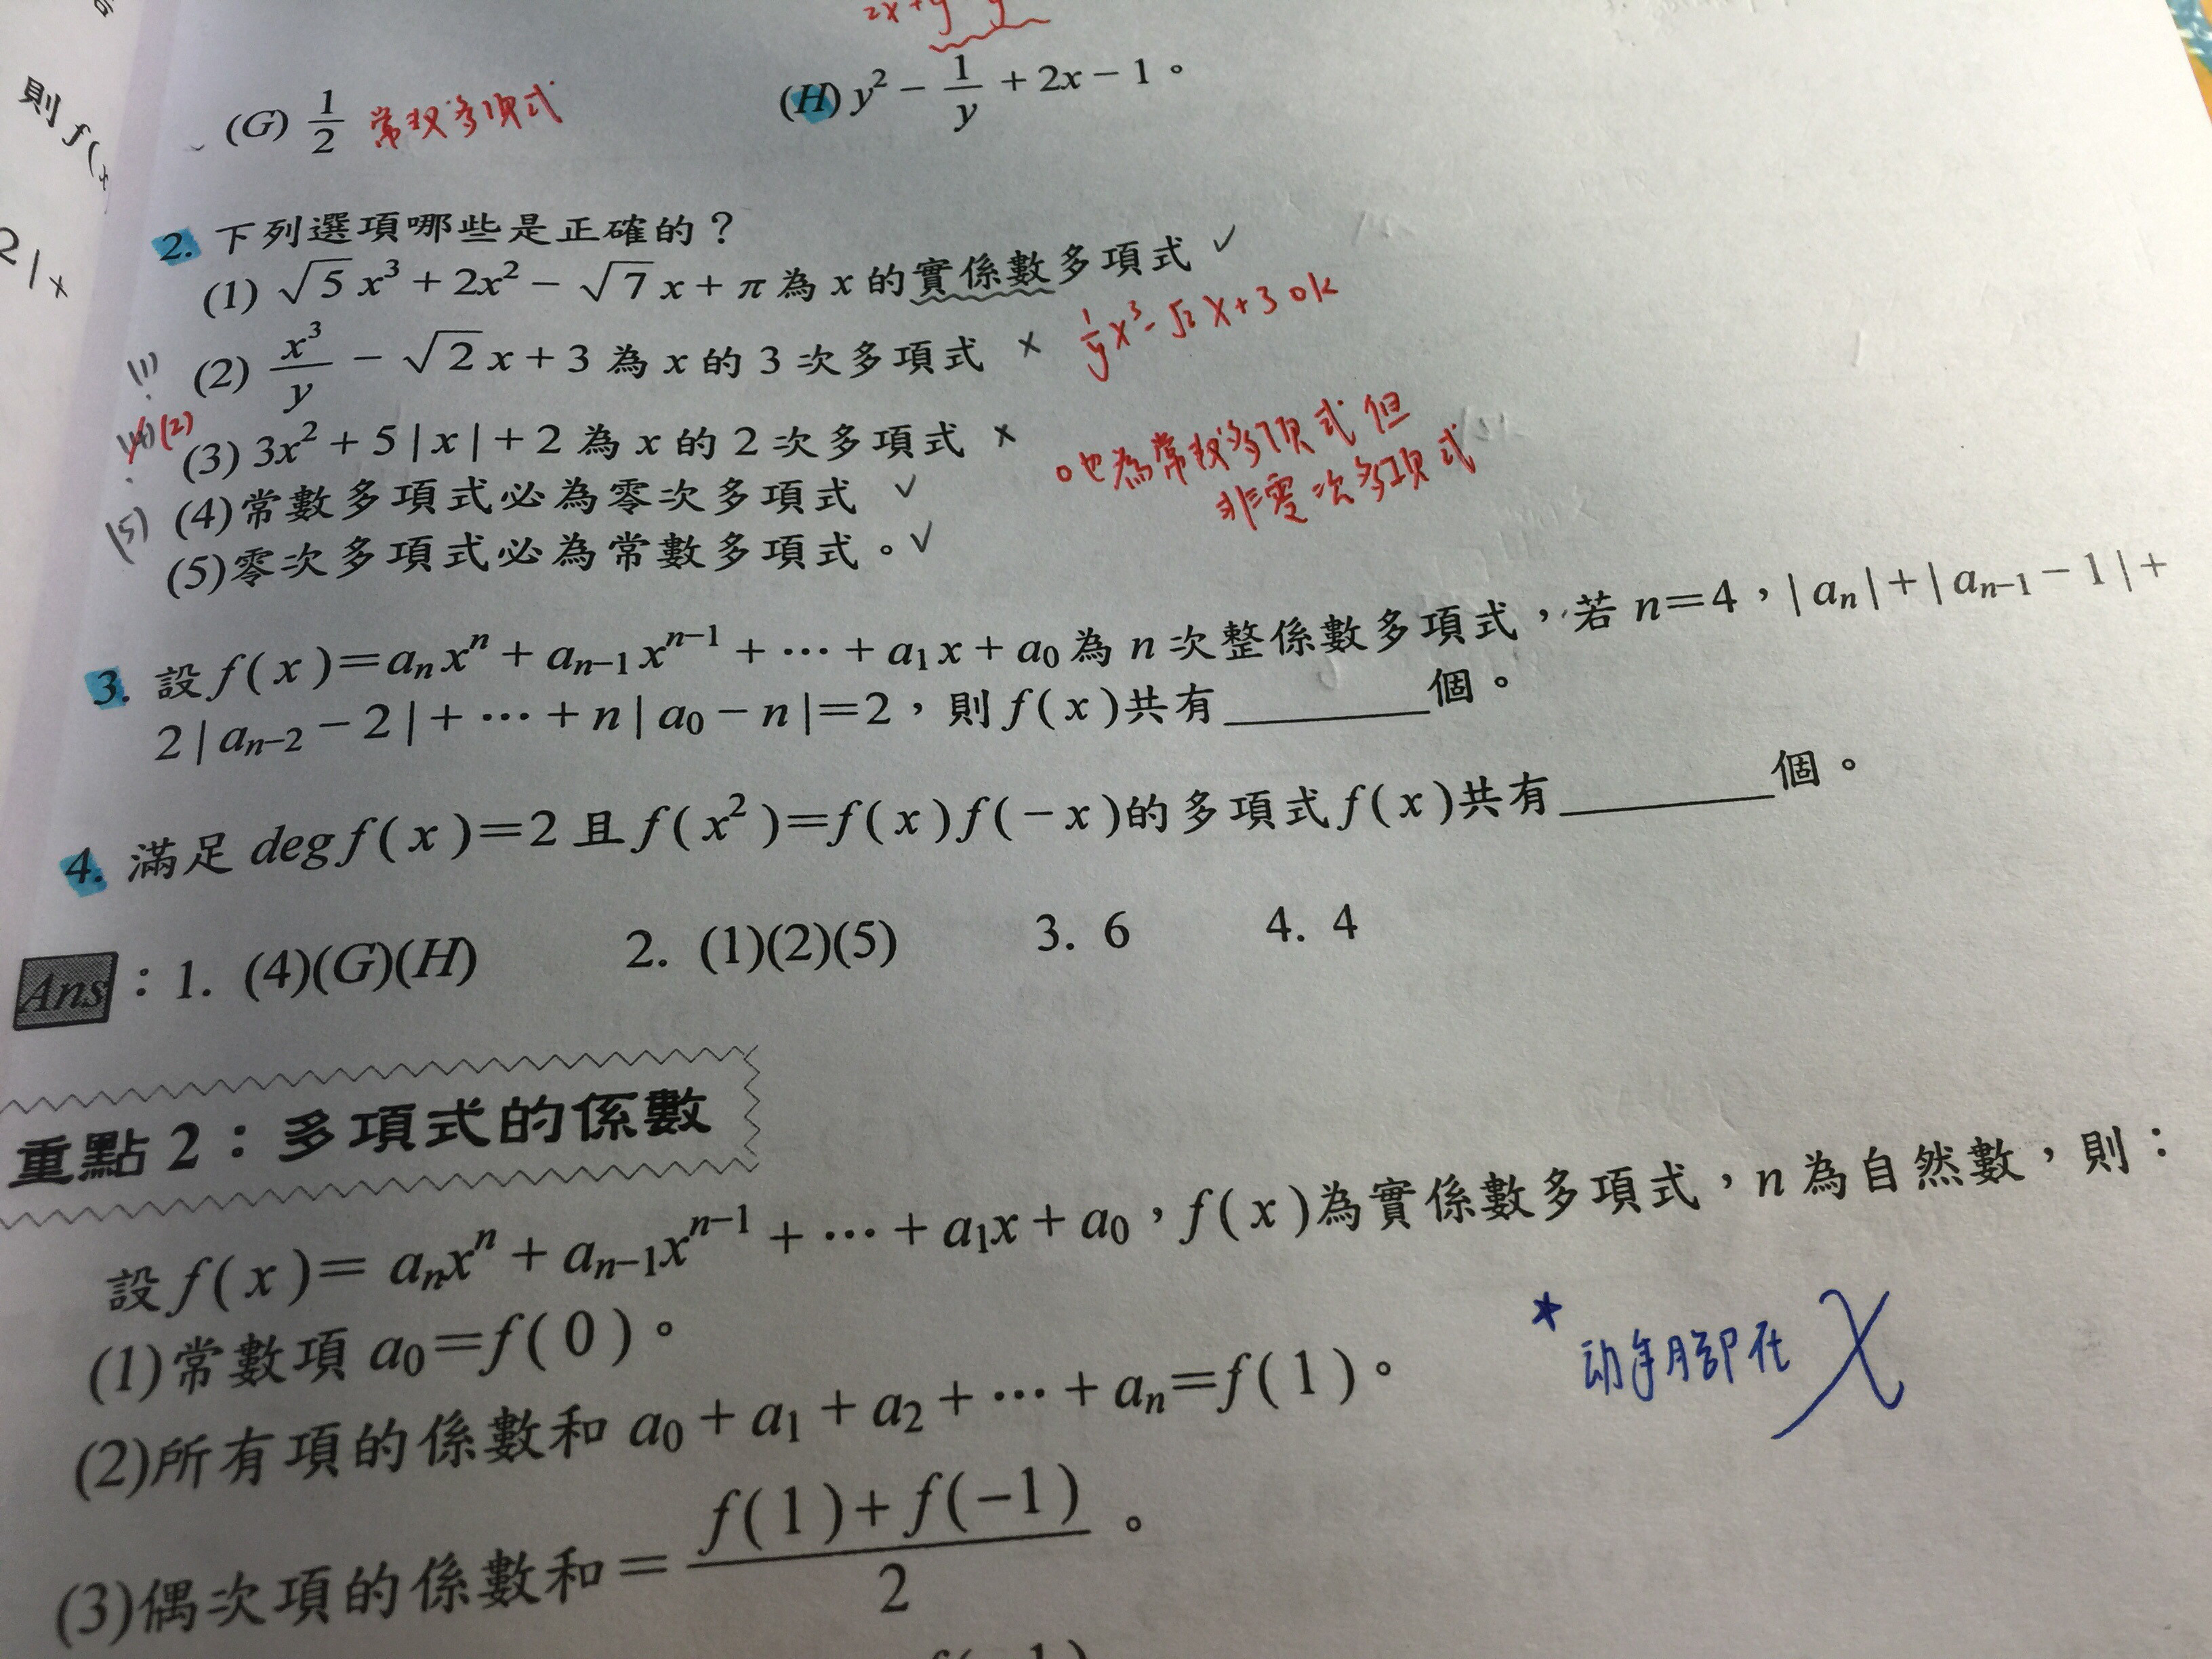 則 f(x
2 | x
2x+y y
(G) 1/2 常数多項式
(H) y² − 1/y + 2x − 1。
2. 下列選項哪些是正確的？
(1) √5 x³ + 2x² − √7 x + π 為 x 的實係數多項式 ✓
(1) (2) x³/y − √2 x + 3 為 x 的 3 次多項式 × 1/y x³ - √2 x + 3 ok
(2) (3) 3x² + 5 | x | + 2 為 x 的 2 次多項式 ×
(4)常數多項式必為零次多項式 ✓
0也為常数多項式但
非零次多項式
(5) (5)零次多項式必為常數多項式。✓
3. 設 f( x )＝aₙxⁿ + aₙ₋₁xⁿ⁻¹ + ⋯ + a₁x + a₀ 為 n 次整係數多項式，若 n＝4，| aₙ | + | aₙ₋₁ − 1 | +
2 | aₙ₋₂ − 2 | + ⋯ + n | a₀ − n |＝2，則 f( x )共有________個。
4. 滿足 deg f( x )＝2 且 f( x² )＝f( x ) f( −x )的多項式 f( x )共有________個。
Ans：1. (4)(G)(H) 2. (1)(2)(5) 3. 6 4. 4
重點 2：多項式的係數
設 f( x )＝ aₙxⁿ + aₙ₋₁xⁿ⁻¹ + ⋯ + a₁x + a₀，f( x )為實係數多項式，n 為自然數，則：
(1)常數項 a₀＝f( 0 )。
* 动手腳在 X
(2)所有項的係數和 a₀ + a₁ + a₂ + ⋯ + aₙ＝f( 1 )。
(3)偶次項的係數和＝ f( 1 ) + f( −1 ) / 2。